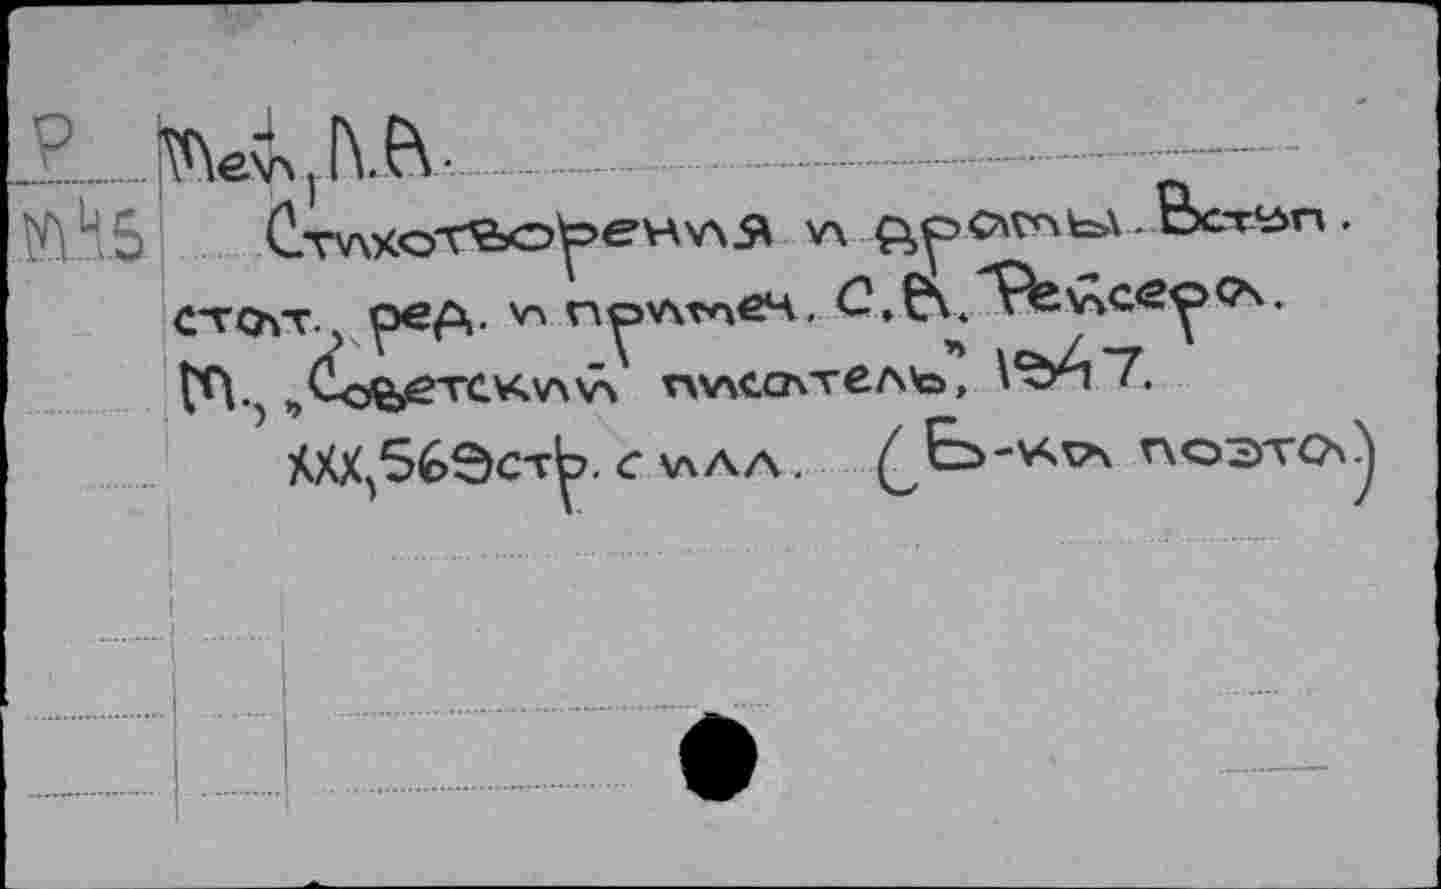 Р Мей, Л.А.
М45 Стихотворения и драмы. Вступ.
стат., ред. и примеч. С.А. Рейсера.
М., „Советский писатель", 1947.
XXX, 569 стр. с илл. (Б-ка поэта.)